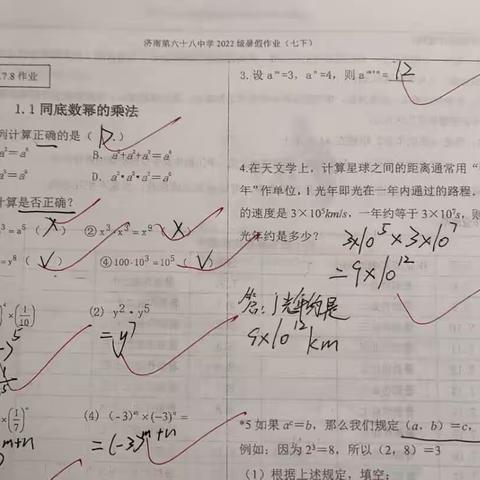 济南第六十八中学 2022 级暑假作业（七下）
7.8 作业
1.1 同底数幂的乘法
列计算正确的是（ D ）
a²=a⁶
B. a²+a²+a²=a⁶
a²=a⁶
D. a²•a²•a²=a⁶
计算是否正确？
³=a⁶（ X ）
② x³·x³=x⁹（ X ）
=y⁸（ √ ）
④ 100·10³=10⁵（ √ ）
×(1/10)
(2) y²·y⁵
=y⁷
×(1/7)
(4) (-3)ᵐ×(-3)ⁿ=
=(-3)ᵐ⁺ⁿ
3.设 aᵐ=3，aⁿ=4，则 aᵐ⁺ⁿ= 12
4.在天文学上，计算星球之间的距离通常用“
年”作单位，1 光年即光在一年内通过的路程，
的速度是 3×10⁵km/s，一年约等于 3×10⁷s，则
光年约是多少？
3×10⁵×3×10⁷
=9×10¹²
答：1光年约是
9×10¹² km
*5 如果 aᶜ=b，那么我们规定（a，b）=c，
例如：因为 2³=8，所以（2，8）=3
（1）根据上述规定，填空：